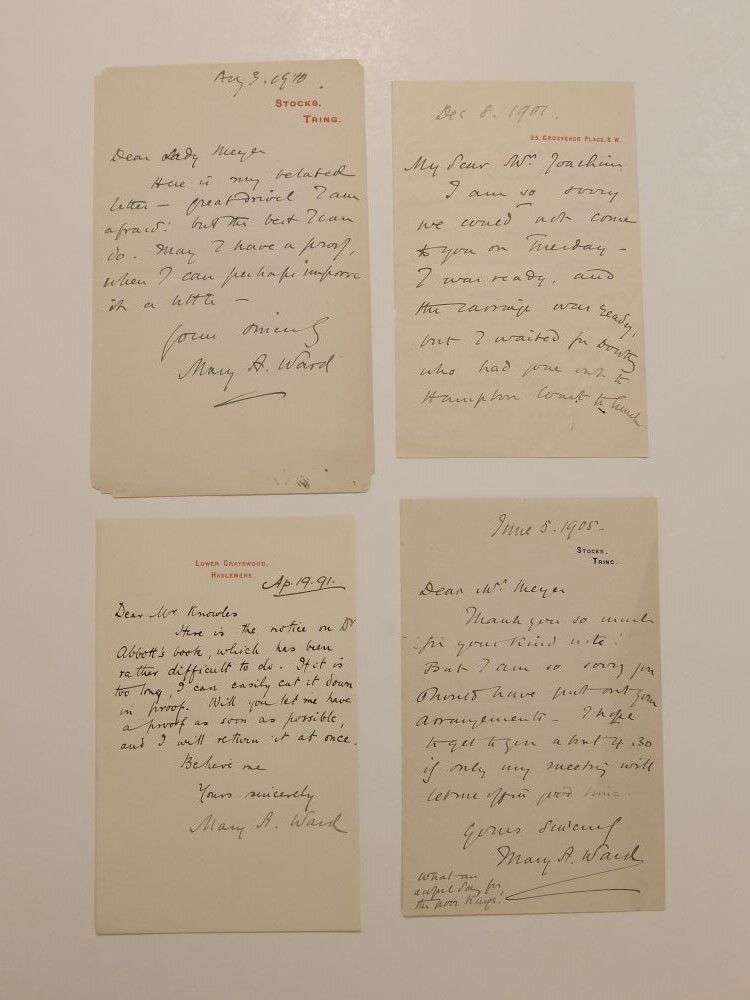 Aug 3. 1910.
STOCKS,
TRING.
Dear Lady Meyer
Here is my belated
letter — great drivel I am
afraid! but the best I can
do. May I have a proof,
when I can perhaps improve
it a little —
Yours sincerely
Mary A. Ward
Dec 8. 1901.
25, GROSVENOR PLACE, S.W.
My dear Mrs Joachim
I am so sorry
we could not come
to you on Tuesday –
I was ready. and
the carriage was ready,
but I waited for Dorothy
who had gone out to
Hampton Court to lunch
LOWER GRAYSWOOD,
HASLEMERE
Ap. 19. 91.
Dear Mr Knowles
Here is the notice on Dr
Abbott's book, which has been
rather difficult to do. If it is
too long, I can easily cut it down
in proof. Will you let me have
a proof as soon as possible,
and I will return it at once.
Believe me
Yours sincerely
Mary A. Ward
June 5. 1905 –
STOCKS,
TRING.
Dear Mrs Meyer
Thank you so much
for your kind note!
But I am so sorry you
should have put out your
arrangements – I hope
to get to you about 4.30
if only my meeting will
let me off in good time.
Yours sincerely
Mary A. Ward
What an
awful day for
the poor Kings!